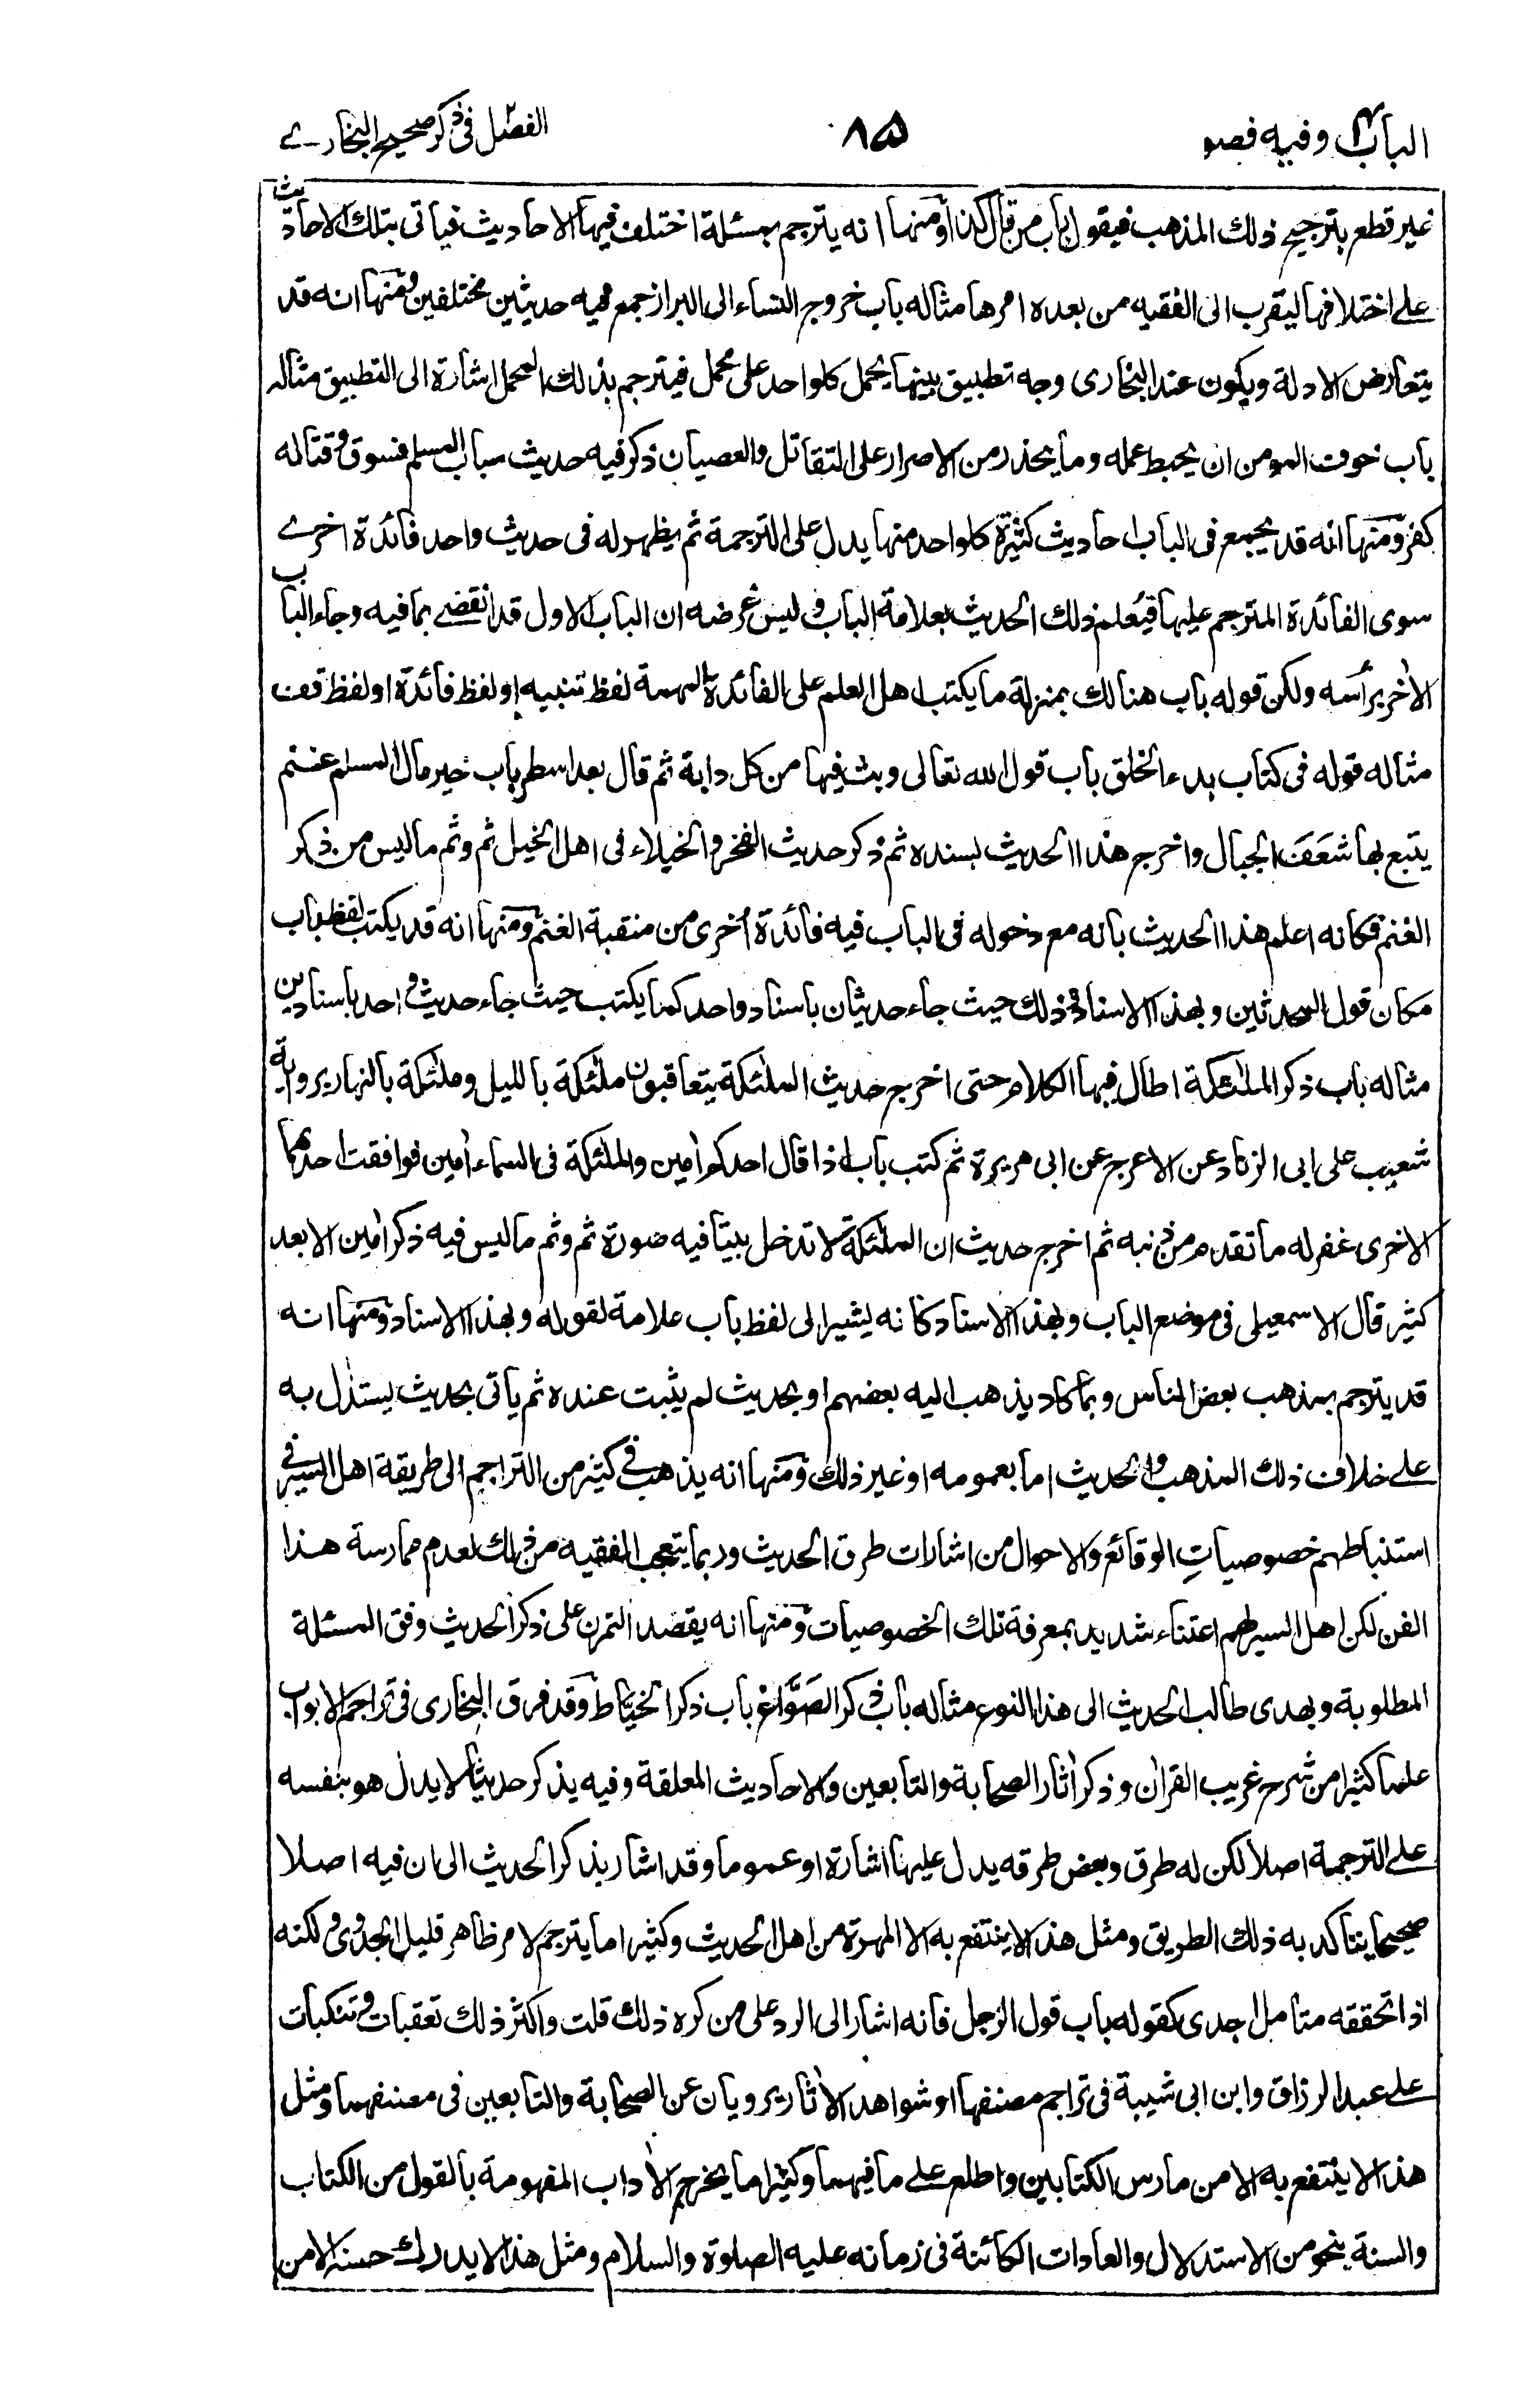 الباب ٤ وفيه فصو
٨٥
الفصل ٢ فى ذكر صحيح البخارے
غير قطع بترجيح ذلك المذهب فيقول باب من قال كذا ومنها انه يترجم بمسئلة اختلف فيها الاحاديث فياتى بتلك الاحاديث
علے اختلافها ليقرب الى الفقيه من بعده امرها مثاله باب خروج النساء الى البراز جمع فيه حديثين مختلفين ومنها انه قد
يتعارض الادلة ويكون عند البخارى وجه تطبيق بينها يحمل كلواحد على محمل فيترجم بذلك المحمل اشارة الى التطبيق مثاله
باب خوف المومن ان يحبط عمله وما يحذر من الاصرار على التقاتل والعصيان ذكر فيه حديث سباب المسلم فسوق وقتاله
كفر ومنها انه قد يجمع فى الباب احاديث كثيرة كلواحد منها يدل على الترجمة ثم يظهر له فى حديث واحد فائدة اخرے
سوى الفائدة المترجم عليها فيُعلم ذلك الحديث بعلامة الباب وليس غرضه ان الباب الاول قد انقضے بما فيه وجاء الباب
الاٰخر برأسه ولكن قوله باب هنالك بمنزلة ما يكتب اهل العلم على الفائدة المهمة لفظ تنبيه او لفظ فائدة او لفظ قف
مثاله قوله فى كتاب بدء الخلق باب قول الله تعالى وبث فيها من كل دابة ثم قال بعد اسطر باب خير مال المسلم غنم
يتبع بها شَعَفَ الجبال واخرج هذا الحديث بسنده ثم ذكر حديث الفخر والخيلاء فى اهل الخيل ثم وثم ما ليس من ذكر
الغنم فكانه اعلم هذا الحديث بانه مع دخوله فى الباب فيه فائدة اُخرى من منقبة الغنم ومنها انه قد يكتب لفظ باب
مكان قول المحدثين وبهذا الاسناد وذلك حيث جاء حديثان باسناد واحد كما يكتب حيث جاء حديث واحد باسنادين
مثاله باب ذكر الملٰئكة اطال فيها الكلام حتى اخرج حديث الملٰئكة يتعاقبون ملٰئكة بالليل وملٰئكة بالنهار برواية
شعيب على ابى الزناد عن الاعرج عن ابى هريرة ثم كتب باب اذا قال احدكم اٰمين والملٰئكة فى السماء اٰمين فوافقت احدٰهما
الاخرى غفر له ما تقدم من ذنبه ثم اخرج حديث ان الملٰئكة لا تدخل بيتا فيه صورة ثم وثم ما ليس فيه ذكر اٰمين الا بعد
كثير قال الاسمعيلى فى موضع الباب وبهذا الاسناد كانه ليشير الى لفظ باب علامة لقوله وبهذا الاسناد ومنها انه
قد يترجم بمذهب بعض الناس وبما كاد يذهب اليه بعضهم او بحديث لم يثبت عنده ثم ياتى بحديث يستدل به
علے خلاف ذلك المذهب والحديث اما بعمومه او غير ذلك ومنها انه يذهب فى كثير من التراجم الى طريقة اهل السير فى
استنباطهم خصوصياتِ الوقائع والاحوال من اشارات طرق الحديث وربما يتعجب الفقيه من ذلك لعدم ممارسة هذا
الفن لكن اهل السير لهم اعتناء شديد بمعرفة تلك الخصوصيات ومنها انه يقصد التمرن على ذكر الحديث وفق المسئلة
المطلوبة ويهدى طالب الحديث الى هذا النوع مثاله باب ذكر الصَوَّاغ باب ذكر الخياط وقد فرق البخارى فى تراجم الابواب
علما كثيرا من شرح غريب القراٰن وذكر اٰثار الصحابة والتابعين والاحاديث المعلقة وفيه يذكر حديثا لا يدل هو بنفسه
علے الترجمة اصلا لكن له طرق وبعض طرقه يدل عليها اشارة او عموما وقد اشار بذكر الحديث الى ان فيه اصلا
صحيحا يتأكد به ذلك الطريق ومثل هذا لا ينتفع به الا المهرة من اهل الحديث وكثيرا ما يترجم لامر ظاهر قليل الجدوى ولكنه
اذا تحققه متامل اجدى كقوله باب قول الرجل فانه اشار الى الرد على من كره ذلك قلت واكثر ذلك تعقبات وتنكبات
علے عبد الرزاق وابن ابى شيبة فى تراجم مصنفها او شواهد الاٰثار يرويان عن الصحابة والتابعين فى مصنفهما ومثل
هذا لا ينتفع به الا من مارس الكتابين واطلع علے ما فيهما وكثيرا ما يخرج الاٰداب المفهومة بالقول من الكتاب
والسنة بنحو من الاستدلال والعادات الكائنة فى زمانه عليه الصلوة والسلام ومثل هذا لا يدرك حسنه الا من